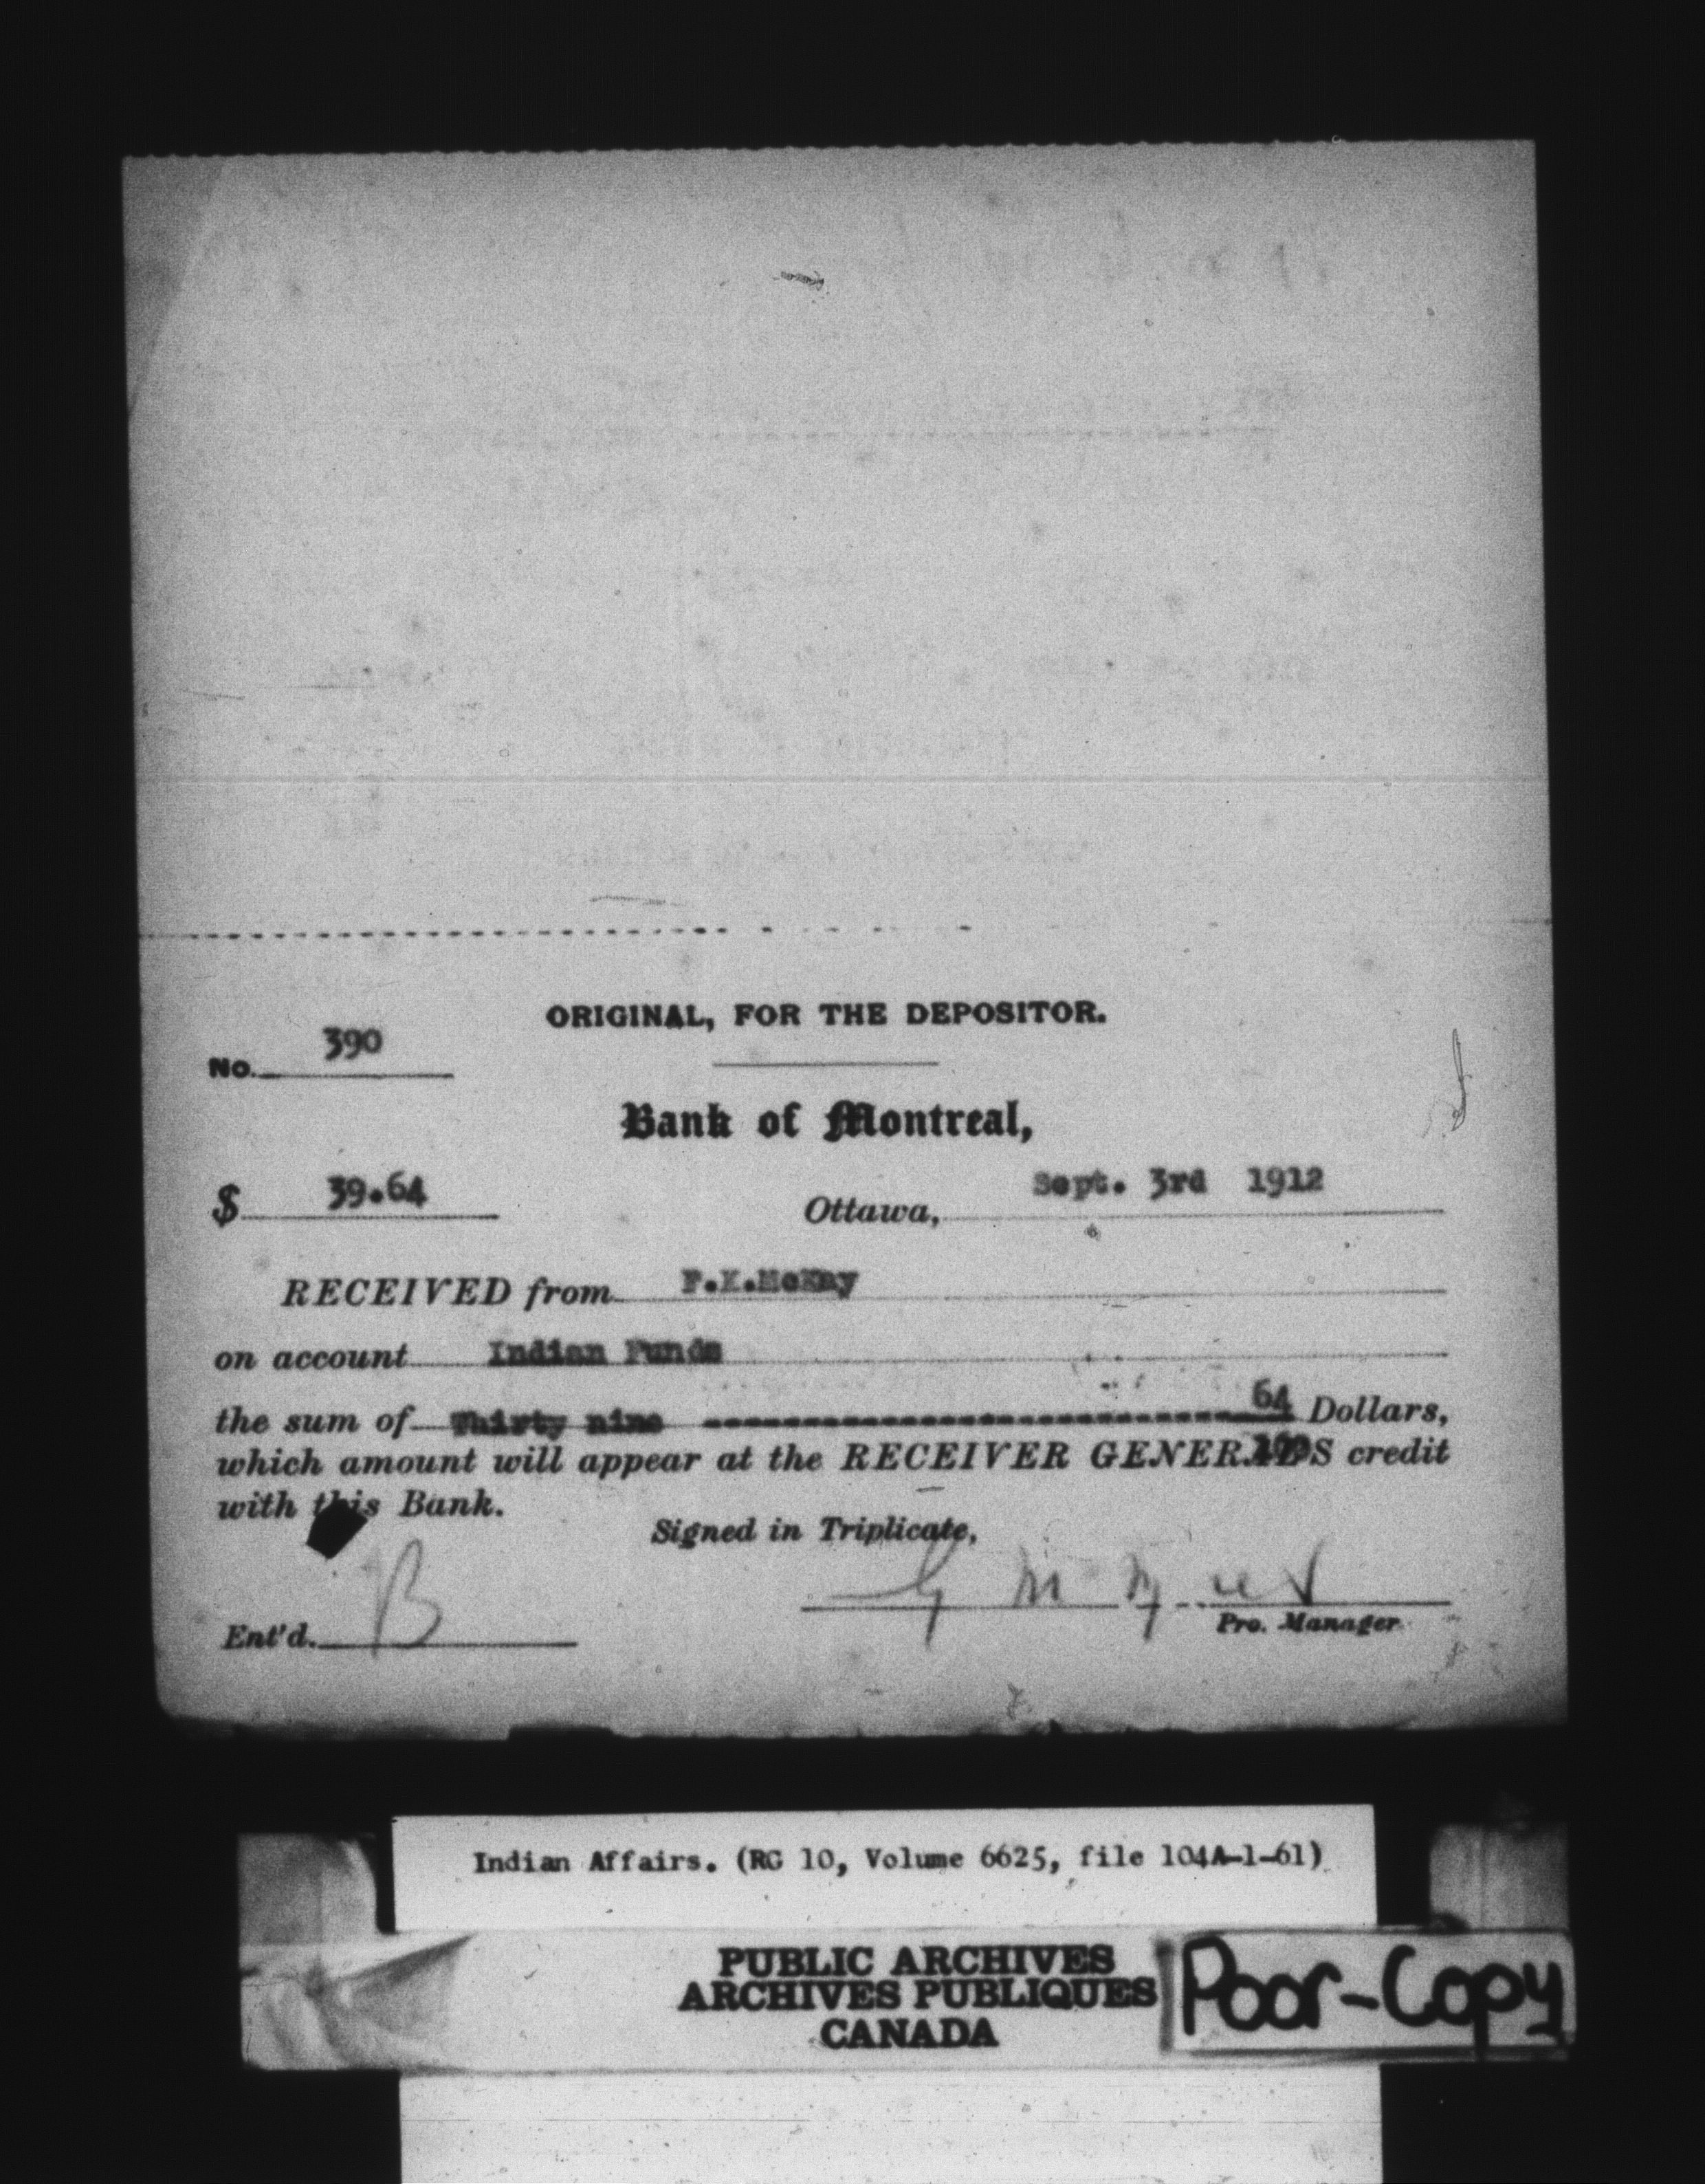 ORIGINAL, FOR THE DEPOSITOR.
No. 390
Bank of Montreal,
$ 39.64
Ottawa, Sept. 3rd 1912
RECEIVED from F.K.McKay
on account Indian Funds
the sum of Thirty nine ---------------------------- 64 Dollars,
100
which amount will appear at the RECEIVER GENERAL'S credit
with this Bank.
Signed in Triplicate,
Ent'd. B
Pro. Manager
Indian Affairs. (RG 10, Volume 6625, file 104A-1-61)
PUBLIC ARCHIVES
ARCHIVES PUBLIQUES
CANADA
Poor-Copy